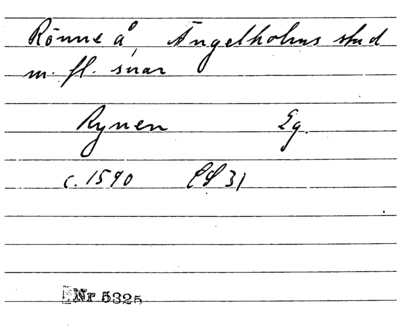 Rönne å, Ängelholms stad
m. fl. snar
Rynen Eg.
c. 1590 CS 31
Nr 5325